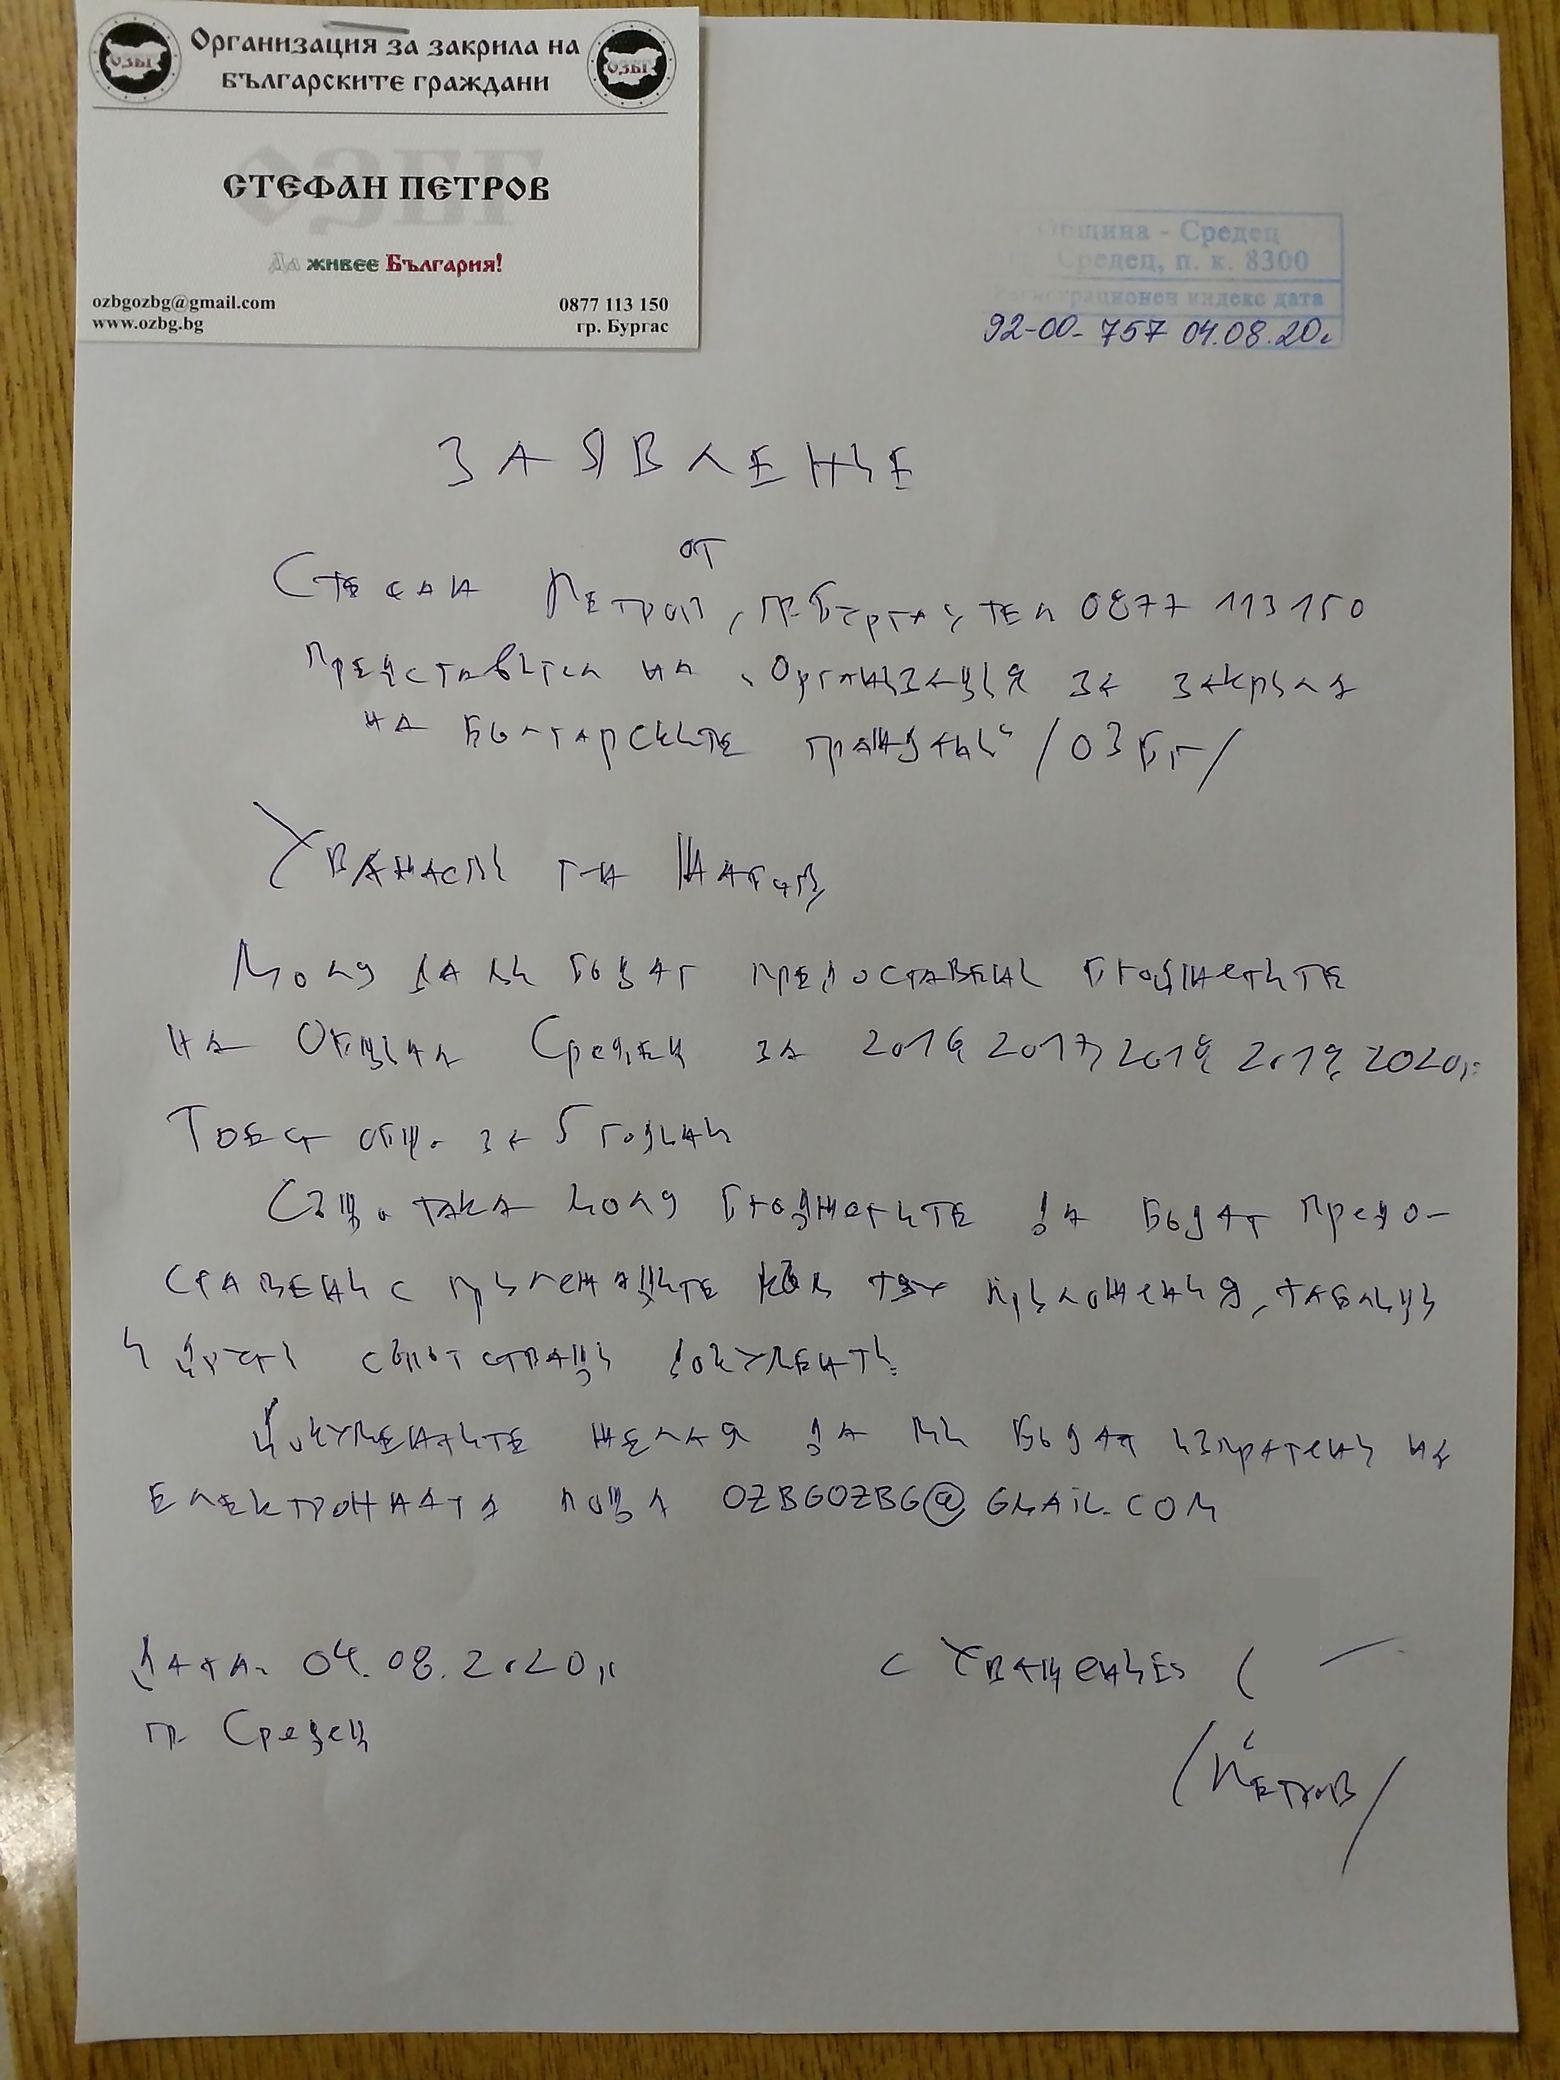 Организация за закрила на
българските граждани
ОЗБГ
ОЗБГ
ОЗБГ
СТЕФАН ПЕТРОВ
Да живее България!
ozbgozbg@gmail.com
www.ozbg.bg
0877 113 150
гр. Бургас
Община - Средец
Средец, п. к. 8300
Регистрационен индекс дата
92-00-757 04.08.20г
ЗАЯВЛЕНИЕ
от
Стефан Петров, гр. Бургас, тел 0877 113150
Представител на „Организация за закрила
на българските граждани“ /ОЗБГ/
Уважаеми г-н Жабов
Моля да ми бъдат предоставени бюджетите
на Община Средец за 2016, 2017, 2018, 2019, 2020г.
Тоест общо за 5 години
Също така моля бюджетите да бъдат предо-
ставени с прилежащите към тях приложения, таблици
и други съпътстващи документи.
Документите желая да ми бъдат изпратени на
електронната поща OZBGOZBG@GMAIL.COM
Дата: 04.08.2020г.
гр. Средец
с Уважение:
/Петров/